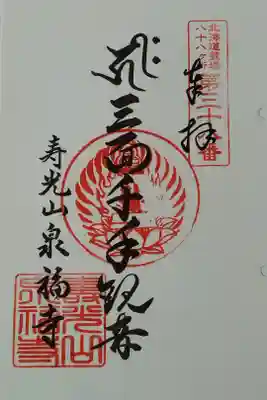 北海道霊場
八十八ヶ所
第三十番
奉拝
三面千手観音
寿光山泉福寺
寿光山
泉福寺